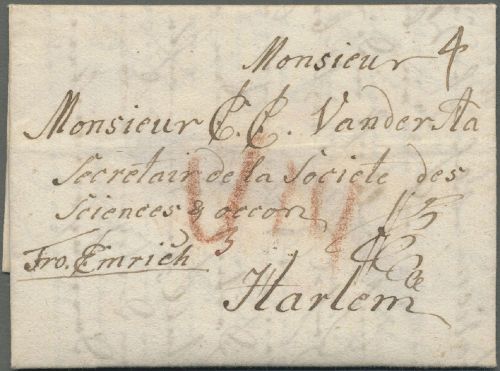 Monsieur 4
Monsieur C. C. Vander Aa
Secretair de la Societe des
Sciences & oecon
Fro. Emrich
Harlem